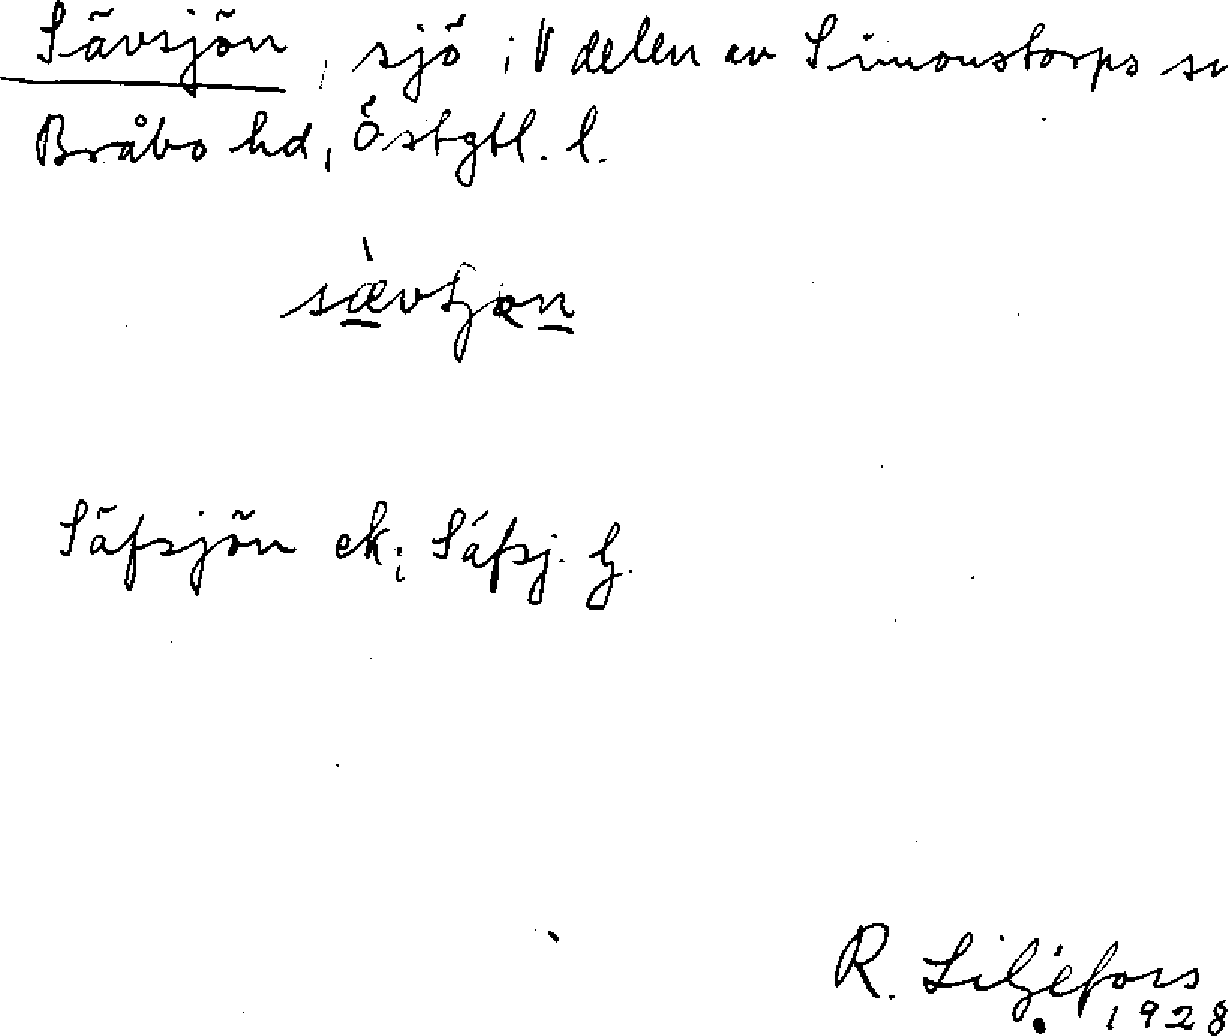 Sävsjön, sjö i V delen av Simonstorps sn
Bråbo hd, Östgtl. l.
Säfsjön ek; Säfsj. G.
R. Liljefors
1928